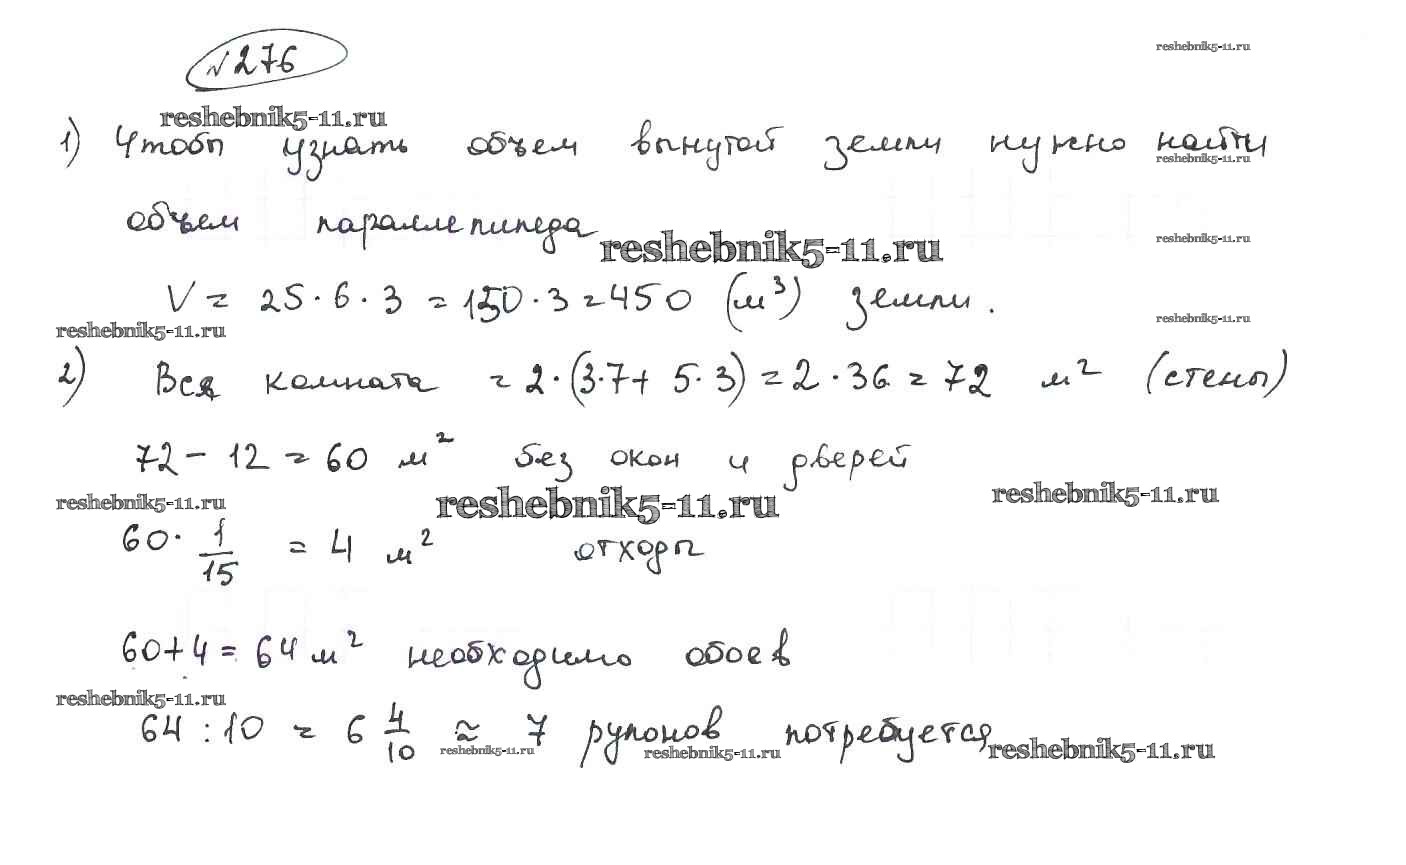 №276
reshebnik5-11.ru
reshebnik5-11.ru
1) Чтобы узнать объем вынутой земли нужно найти
reshebnik5-11.ru
объем параллепипеда
reshebnik5-11.ru
reshebnik5-11.ru
V = 25·6·3 = 150·3 = 450 (м³) земли.
reshebnik5-11.ru
reshebnik5-11.ru
2) Вся комната = 2·(3·7+ 5·3) = 2·36 = 72 м² (стены)
72 - 12 = 60 м² без окон и дверей
reshebnik5-11.ru
reshebnik5-11.ru
reshebnik5-11.ru
60· 1/15 = 4 м² отходы
60+4 = 64 м² необходимо обоев
reshebnik5-11.ru
64 : 10 = 6 4/10 ≈ 7 рулонов потребуется
reshebnik5-11.ru
reshebnik5-11.ru
reshebnik5-11.ru